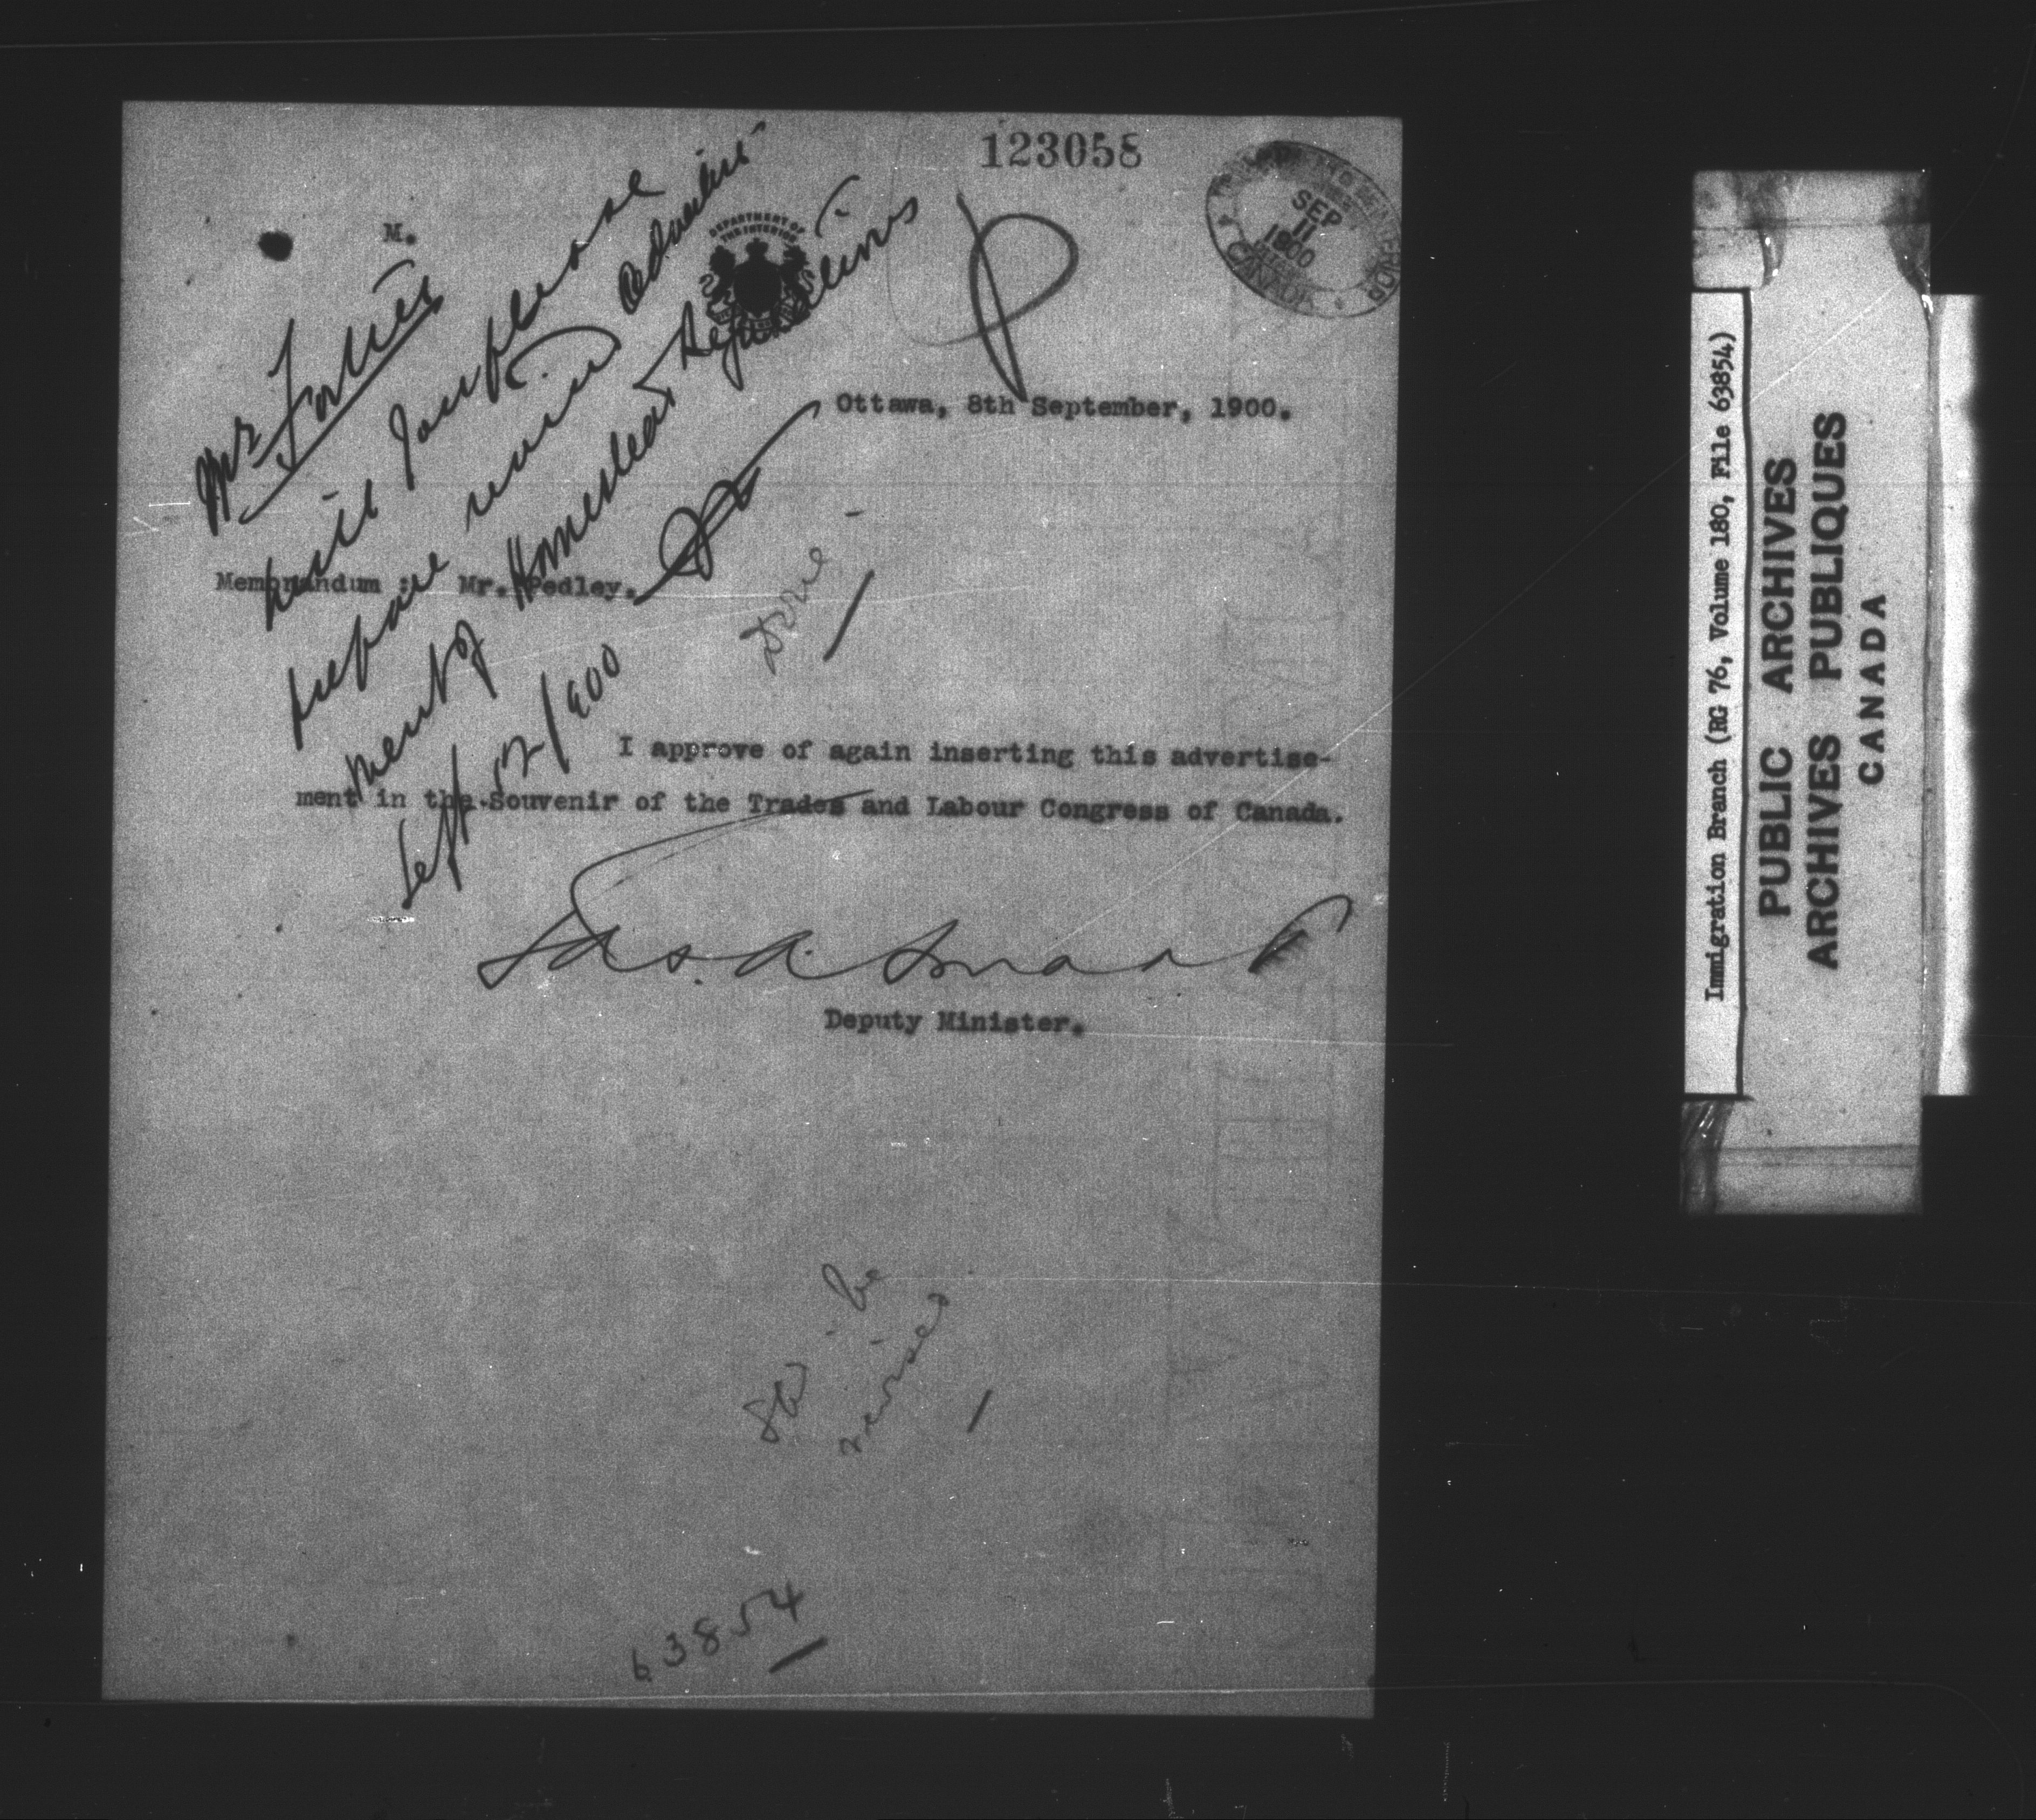 123058
SEP
11
1900
CANADA
M.
DEPARTMENT OF
THE INTERIOR
Ottawa, 8th September, 1900.
Mr
Will you please
prepare revised advertise-
ment of Homestead Regulations
Sept 12/900
Done
Memorandum : Mr. Pedley.
I approve of again inserting this advertise-
ment in the Souvenir of the Trades and Labour Congress of Canada.
Jas. A. Smart
Deputy Minister.
be
revised
63854
Immigration Branch (RG 76, Volume 180, File 63854)
PUBLIC ARCHIVES
ARCHIVES PUBLIQUES
CANADA